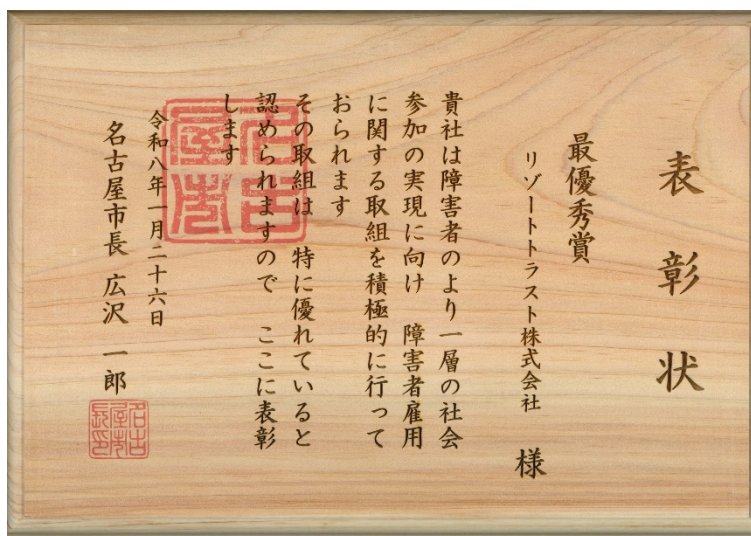 表彰状
最優秀賞
リゾートトラスト株式会社 様
貴社は障害者のより一層の社会
参加の実現に向け 障害者雇用
に関する取組を積極的に行って
おられます
その取組は 特に優れていると
認められますので ここに表彰
します
令和八年一月二十六日
名古屋市長 広沢 一郎
名古屋市
名古屋市長印